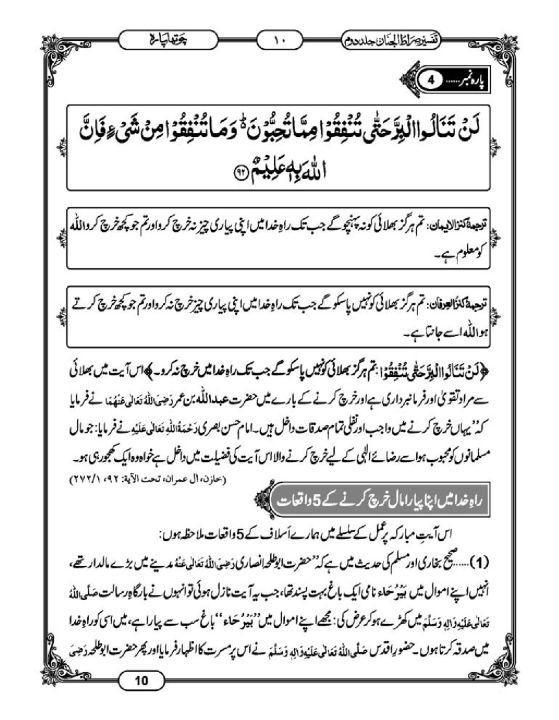 تفسیر صراط الجنان جلد دوم
۱۰
چوتھا پارہ
پارہ نمبر...... 4
لَنْ تَنَالُوا الْبِرَّ حَتّٰى تُنْفِقُوْا مِمَّا تُحِبُّوْنَ ؕ۬ وَ مَا تُنْفِقُوْا مِنْ شَیْءٍ فَاِنَّ
اللّٰهَ بِهٖ عَلِیْمٌ ﴿۹۲﴾
ترجمۂ کنزالایمان: تم ہرگز بھلائی کو نہ پہنچو گے جب تک راہِ خدا میں اپنی پیاری چیز نہ خرچ کرو اور تم جو کچھ خرچ کرو اللہ
کو معلوم ہے۔
ترجمۂ کنزالعرفان: تم ہرگز بھلائی کو نہیں پا سکو گے جب تک راہِ خدا میں اپنی پیاری چیز خرچ نہ کرو اور تم جو کچھ خرچ کرتے
ہو اللہ اسے جانتا ہے۔
﴿لَنْ تَنَالُوا الْبِرَّ حَتّٰى تُنْفِقُوْا: تم ہرگز بھلائی کو نہیں پا سکو گے جب تک راہِ خدا میں خرچ نہ کرو۔﴾ اس آیت میں بھلائی
سے مراد تقویٰ اور فرمانبرداری ہے اور خرچ کرنے کے بارے میں حضرت عبد اللہ بن عمر رَضِیَ اللہُ تَعَالٰی عَنْہُمَا نے فرمایا
کہ ’’یہاں خرچ کرنے میں واجب اور نفلی تمام صدقات داخل ہیں۔ امام حسن بصری رَحْمَۃُ اللہِ تَعَالٰی عَلَیْہِ نے فرمایا: جو مال
مسلمانوں کو محبوب ہو اسے رضائے الٰہی کے لیے خرچ کرنے والا اس آیت کی فضیلت میں داخل ہے خواہ وہ ایک کھجور ہی ہو۔
(خازن، اٰل عمران، تحت الآیۃ: ۹۲، ۲۷۲/۱)
راہِ خدا میں اپنا پیارا مال خرچ کرنے کے 5 واقعات
اس آیتِ مبارکہ پر عمل کے سلسلے میں ہمارے اَسلاف کے 5 واقعات ملاحظہ ہوں:
(1)......صحیح بخاری اور مسلم کی حدیث میں ہے کہ’’ حضرت ابو طلحہ انصاری رَضِیَ اللہُ تَعَالٰی عَنْہُ مدینے میں بڑے مالدار تھے،
انہیں اپنے اموال میں بَیْرُحَاء نامی ایک باغ بہت پسند تھا، جب یہ آیت نازل ہوئی تو انہوں نے بارگاہِ رسالت صَلَّی اللہُ
تَعَالٰی عَلَیْہِ وَاٰلِہٖ وَسَلَّمَ میں کھڑے ہو کر عرض کی: مجھے اپنے اموال میں ’’بَیْرُحَاء‘‘ باغ سب سے پیارا ہے، میں اسی کو راہِ خدا
میں صدقہ کرتا ہوں۔ حضورِ اقدس صَلَّی اللہُ تَعَالٰی عَلَیْہِ وَاٰلِہٖ وَسَلَّمَ نے اس پر مسرت کا اظہار فرمایا اور پھر حضرت ابو طلحہ رَضِیَ
10